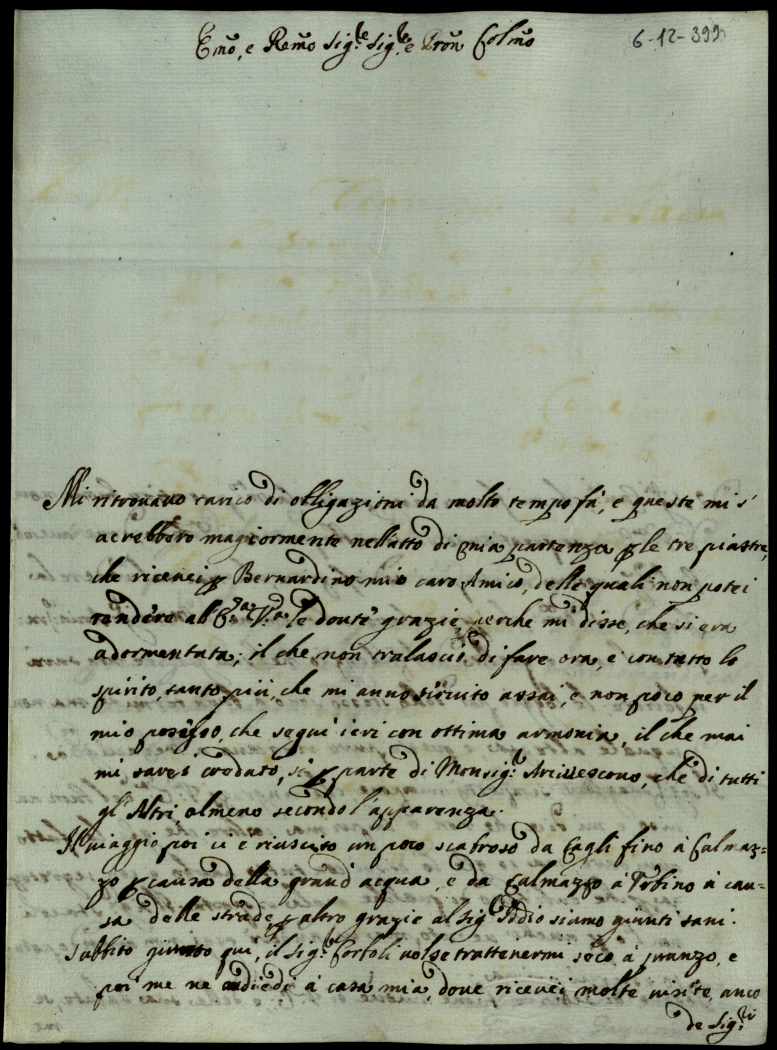 Emo, e Remo Sig.re Sig.re e Pron Colmo
6-12-399
Mi ritrovavo carico di obligazioni da molto tempo fà, e queste mi s'
acrebbero magiormente nell'atto di mia partenza p le tre piastre,
che ricevei p Bernardino mio caro Amico, delle quali non potei
rendere all' le doute grazie, perche mi disse, che si era
adormentata; il che non tralascio di fare ora, e con tutto lo
spirito, tanto più, che mi anno servito assai, e non poco per il
mio possesso, che seguì ieri con ottima armonia, il che mai
mi sarei creduto, sì p parte di Monsig.r Arcivescovo, che di tutti
gl'Altri, almeno secondo l'apparenza.
Il viaggio poi ci e riuscito un poco scabroso da Cagli fino à Calmaz=
zo p causa della grand'acqua, e da Calmazzo à Urbino à cau=
sa delle strade, p altro grazie al Sig.r Iddio siamo giunti sani.
Subbito giunto quì, il Sig.r Cortoli volse trattenermi seco à pranzo, e
poi me ne andiedi à casa mia, dove ricevei molte visite, anco
de Sig.ri